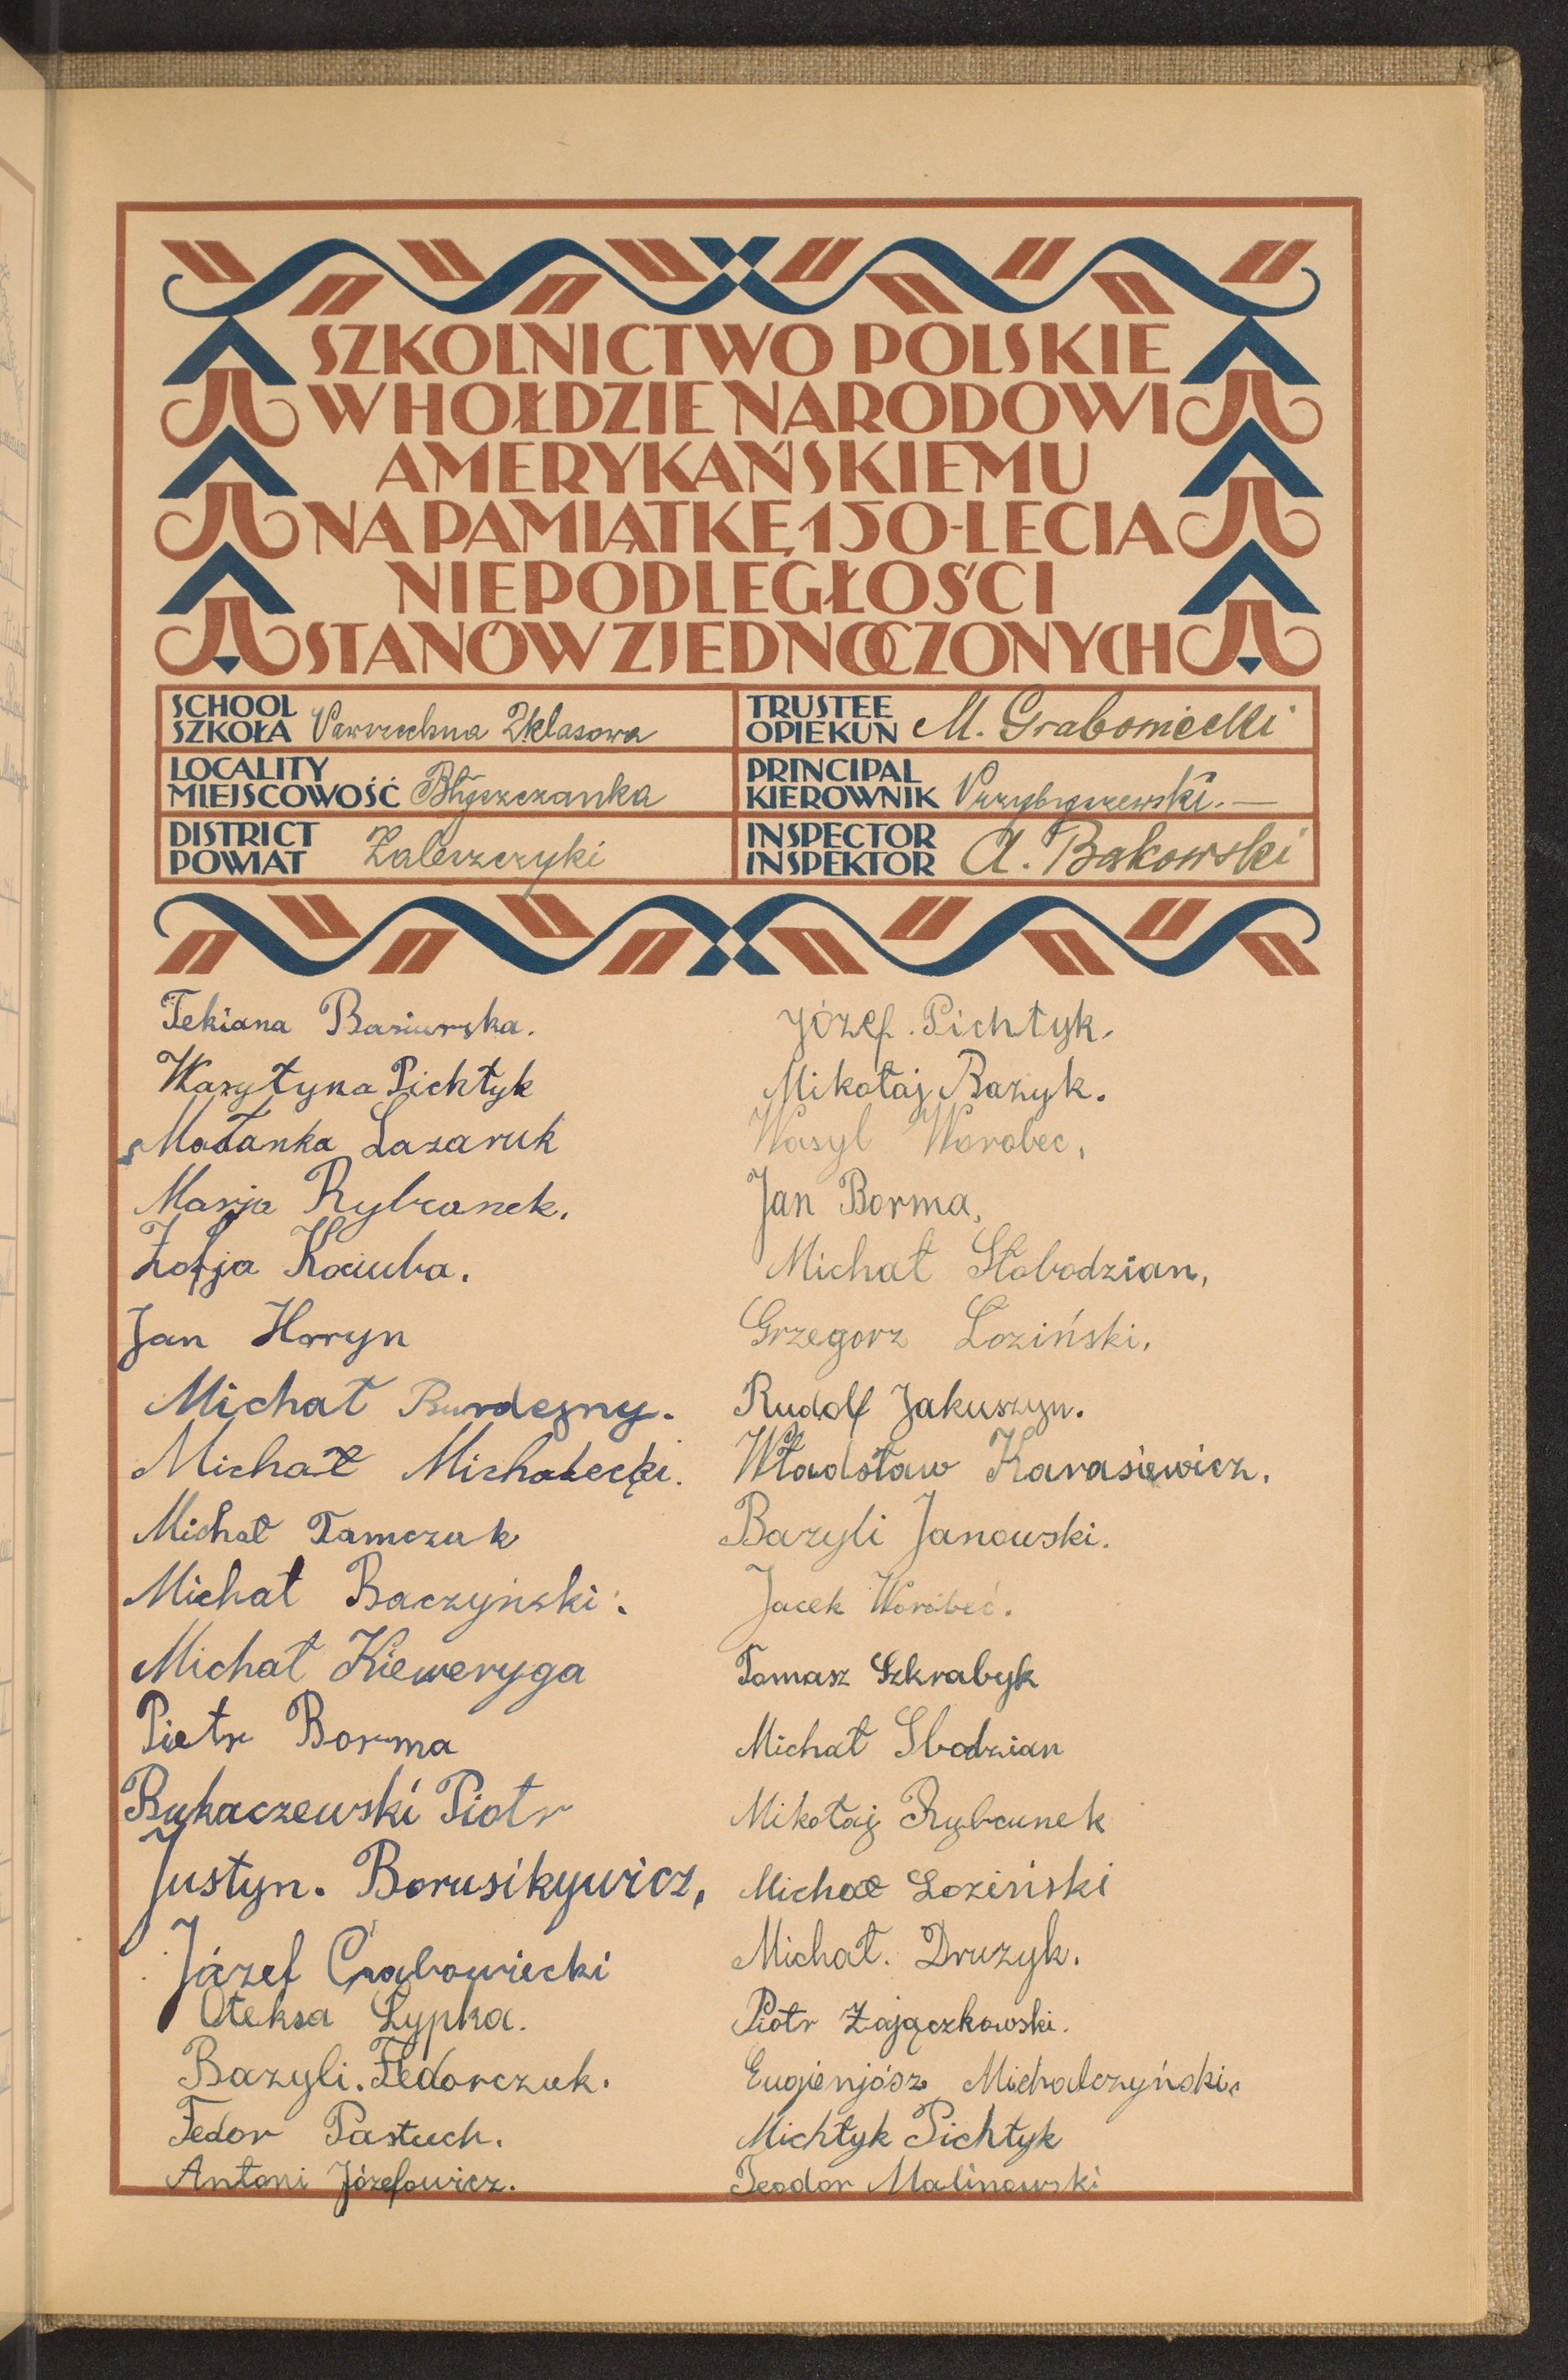 SZKOLNICTWO POLSKIE
W HOŁDZIE NARODOWI
AMERYKAŃSKIEMU
NA PAMIĄTKĘ 150-LECIA
NIEPODLEGŁOŚCI
STANÓW ZJEDNOCZONYCH
SCHOOL
SZKOŁA 2klasowa
TRUSTEE
OPIEKUN M.
LOCALITY
MIEJSCOWOŚĆ Błyszczanka
PRINCIPAL
KIEROWNIK Przybyszewski.—
DISTRICT
POWIAT Zaleszczyki
INSPECTOR
INSPEKTOR A. Bakowski
Tekiana
Pichtyk
Lazaruk
Marja Rybcanek.
Zofja Kociuba.
Jan Horyn
Michał Burdezny.
Michał Michalecki.
Michał Tamczuk
Michał Baczyński.
Michał Kieweryga
Piotr Borma
Bukaczewski Piotr
Justyn. Borusikywicz,
Józef Grabowiecki
Ołeksa Lypka.
Bazyli. Fedorczuk.
Fedor Pastuch.
Antoni Józefowicz.
Józef. Pichtyk.
Mikołaj Bazyk.
Wasyl Worobec,
Jan Borma,
Michał Słobodzian,
Grzegorz Łoziński.
Rudolf Jakuszyn.
Władsław Karasiewicz.
Bazyli Janowski.
Jacek Worobeć.
Tomasz Szkrabyk
Michał Slbodzian
Mikołaj Rybcunek
Michał Łoziński
Michał. Druzyk.
Piotr Zajączkowski.
Eugienjósz Michalczyński.
Michtyk Pichtyk
Teodor Malinowski